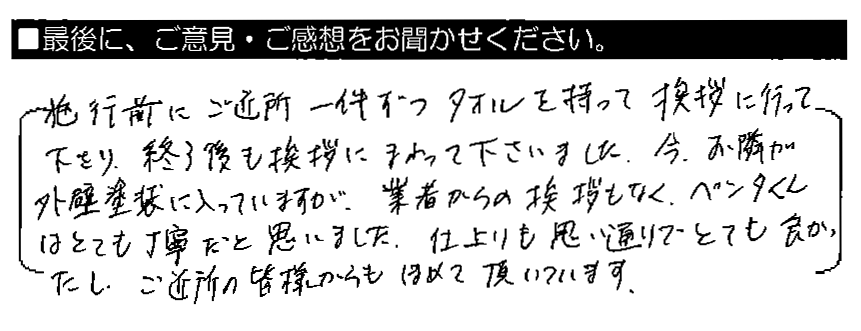 ■最後に、ご意見・ご感想をお聞かせください。
施行前にご近所一件ずつタオルを持って挨拶に行って
下さり、終了後も挨拶にまわって下さいました。今、お隣が
外壁塗装に入っていますが、業者からの挨拶もなく、ペンタくん
はとても丁寧だと思いました。仕上りも思い通りでとても良かっ
たし、ご近所の皆様からもほめて頂いています。